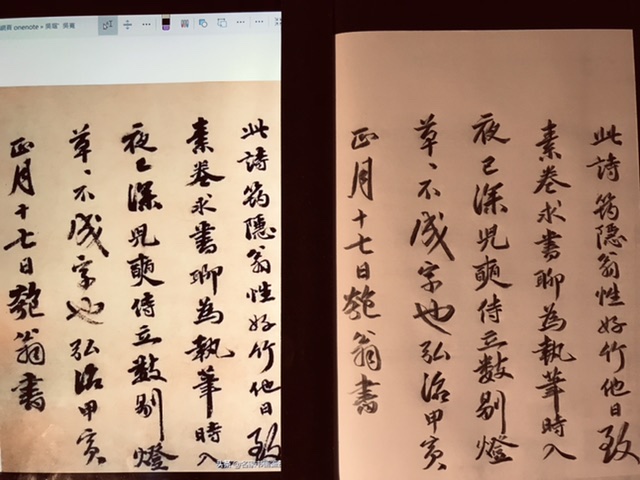 此詩筠隱翁性好竹他日致
素卷求書聊為執筆時入
夜已深児奭侍立數剔燈
草、不成字也弘治甲寅
正月十七日匏翁書
onenote
此詩筠隱翁性好竹他日致
素卷求書聊為執筆時入
夜已深児奭侍立數剔燈
草、不成字也弘治甲寅
正月十七日匏翁書